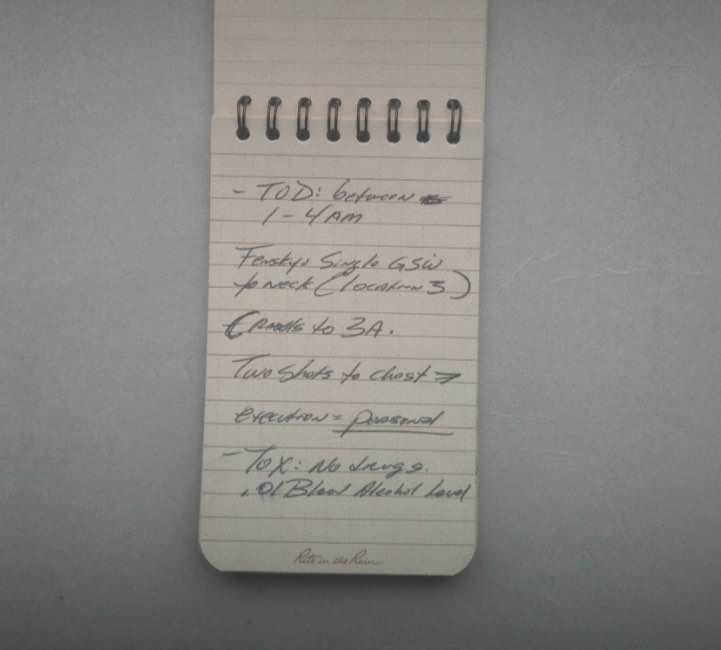 - TOD: between
1-4AM
Single GSW
to neck (Location 3)
to 3A.
Two shots to chest →
execution = personal
- Tox: No drugs.
.01 Blood Alcohol Level
Rite in the Rain